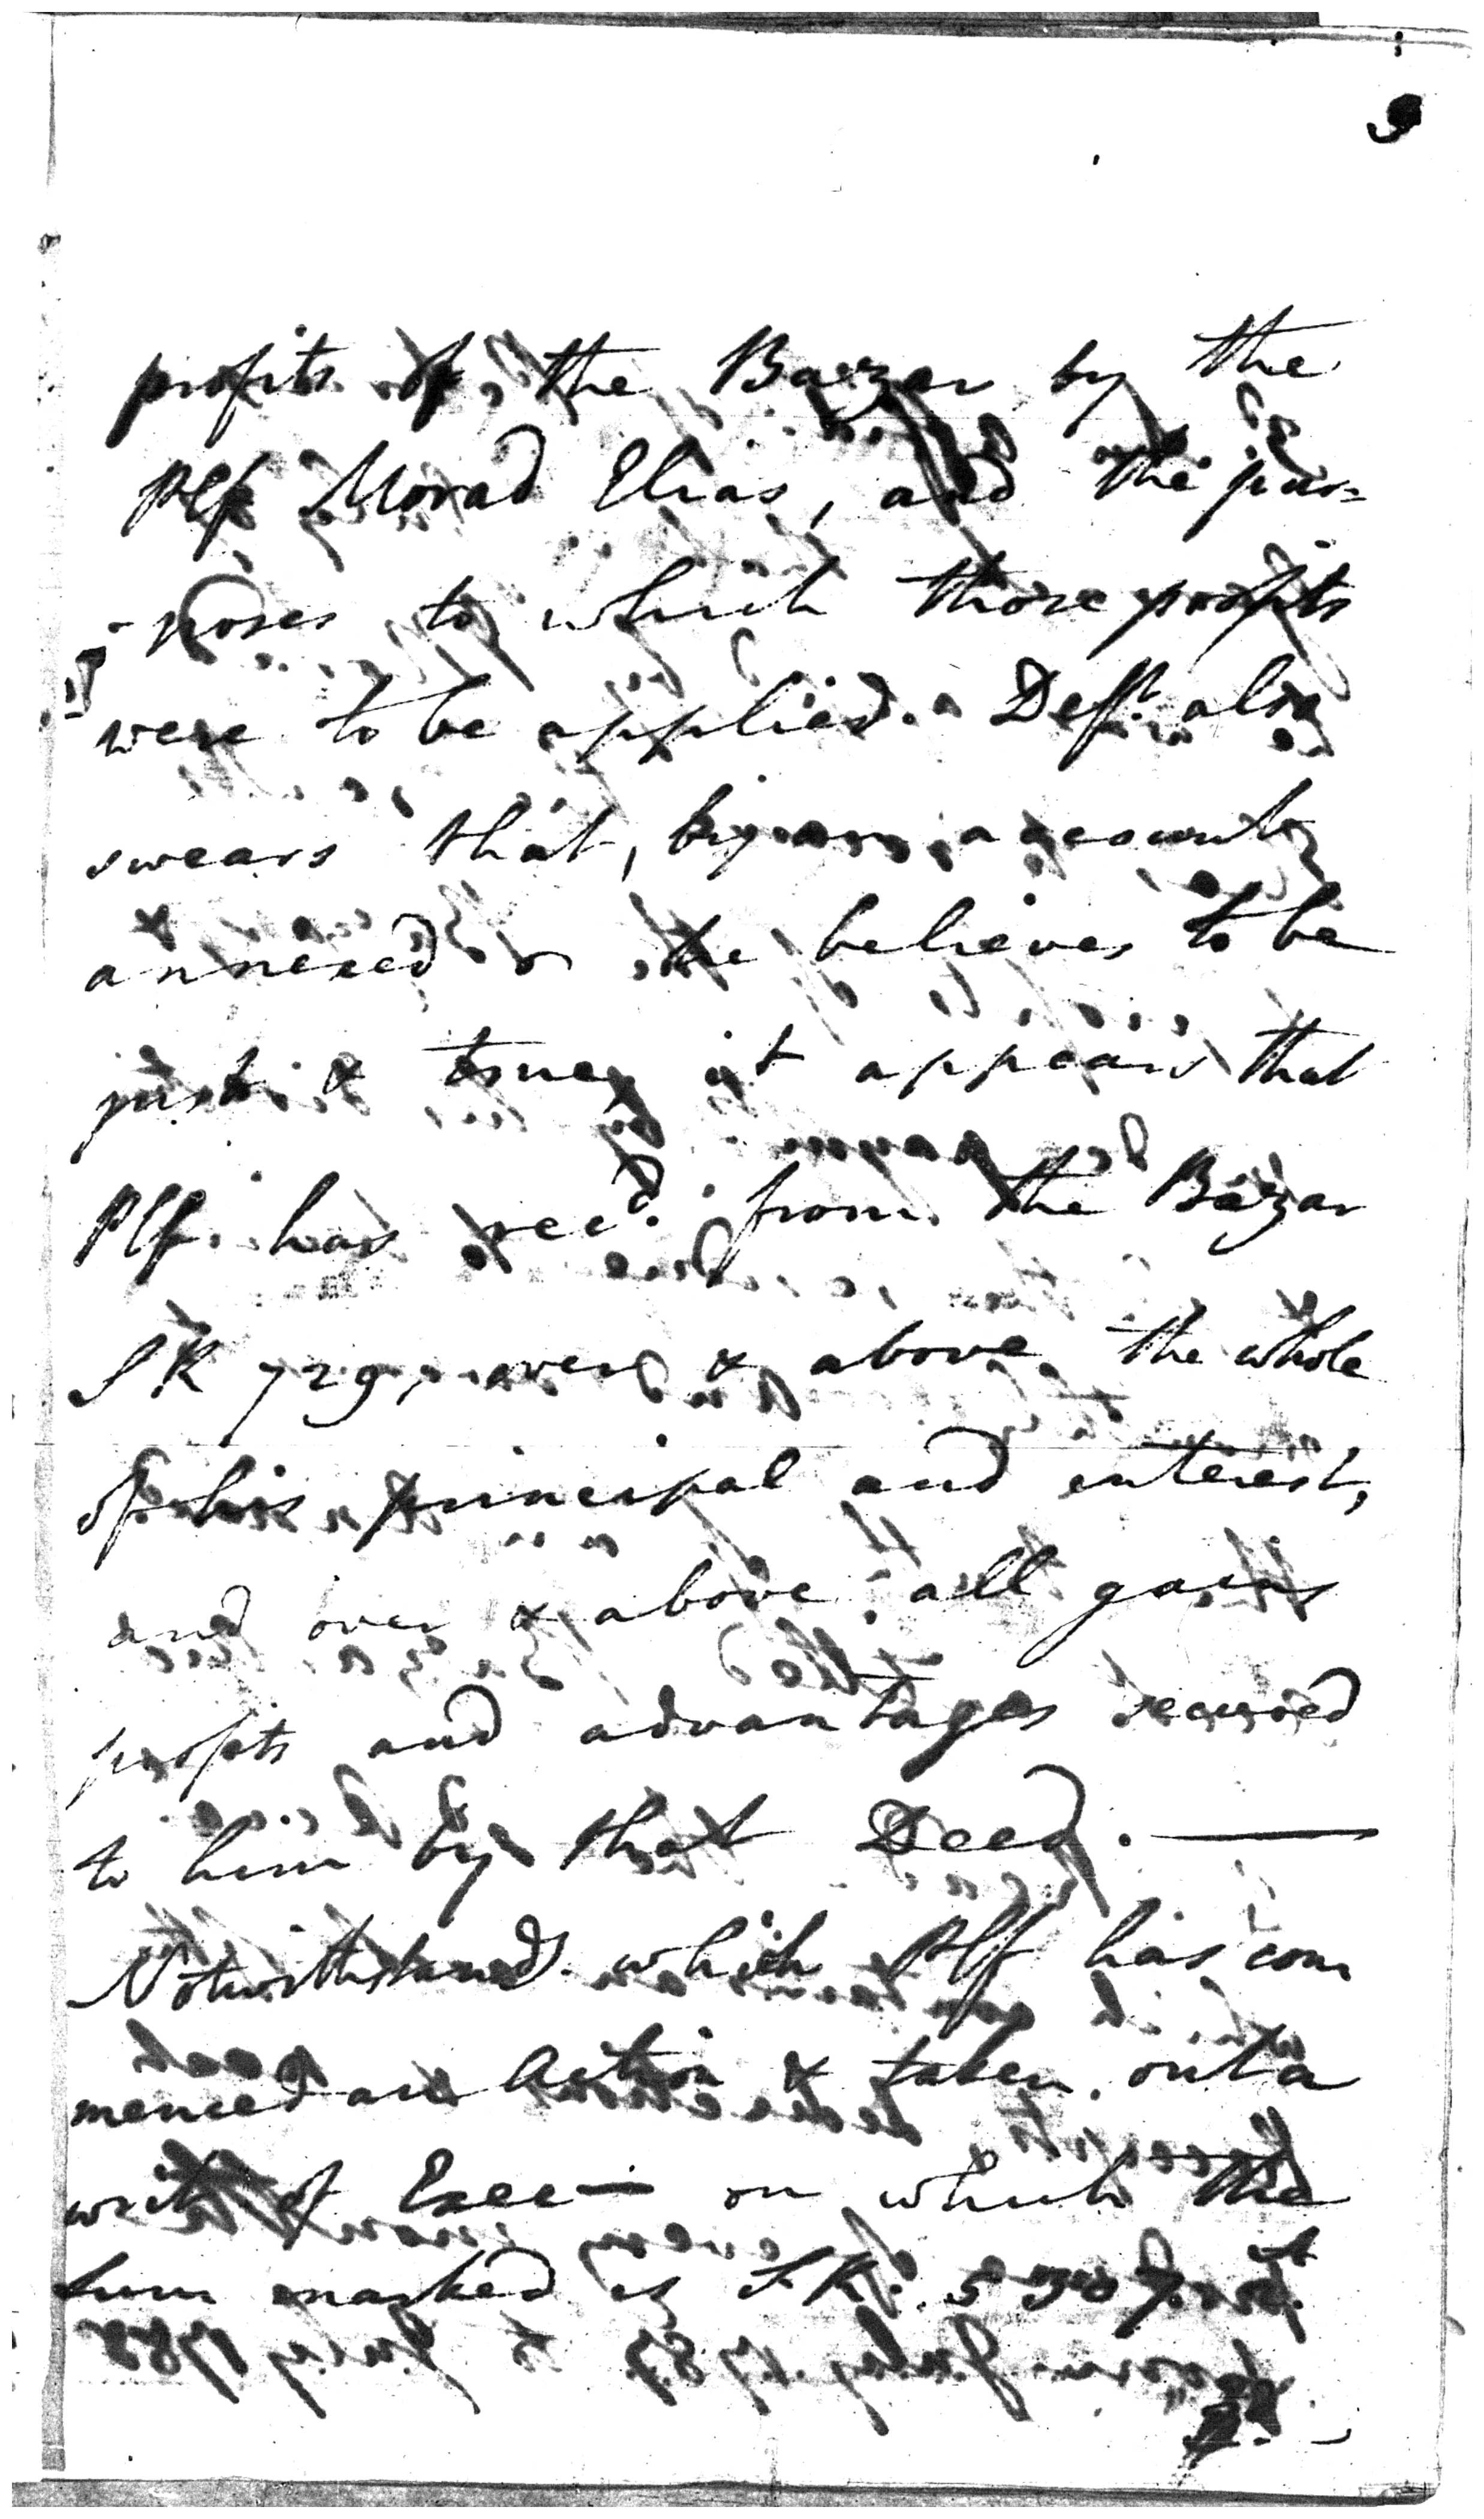 profits of the Bazar by the
Plf Morad Elias, and the pur=
-poses to which those profits
were to be applied. Deft. also
swears that, by an account
annexed & he believes to be
just & true, it appears that
Plf. has recd. from the Bazar
S R 729, over & above the whole
of his principal and interest,
and over & above all gains
profits and advantages secured
to him by that Deed. —
Notwithstandg. which Plf has com
menced an Action & taken out a
writ of Exec— on which the
sum marked is S.R.